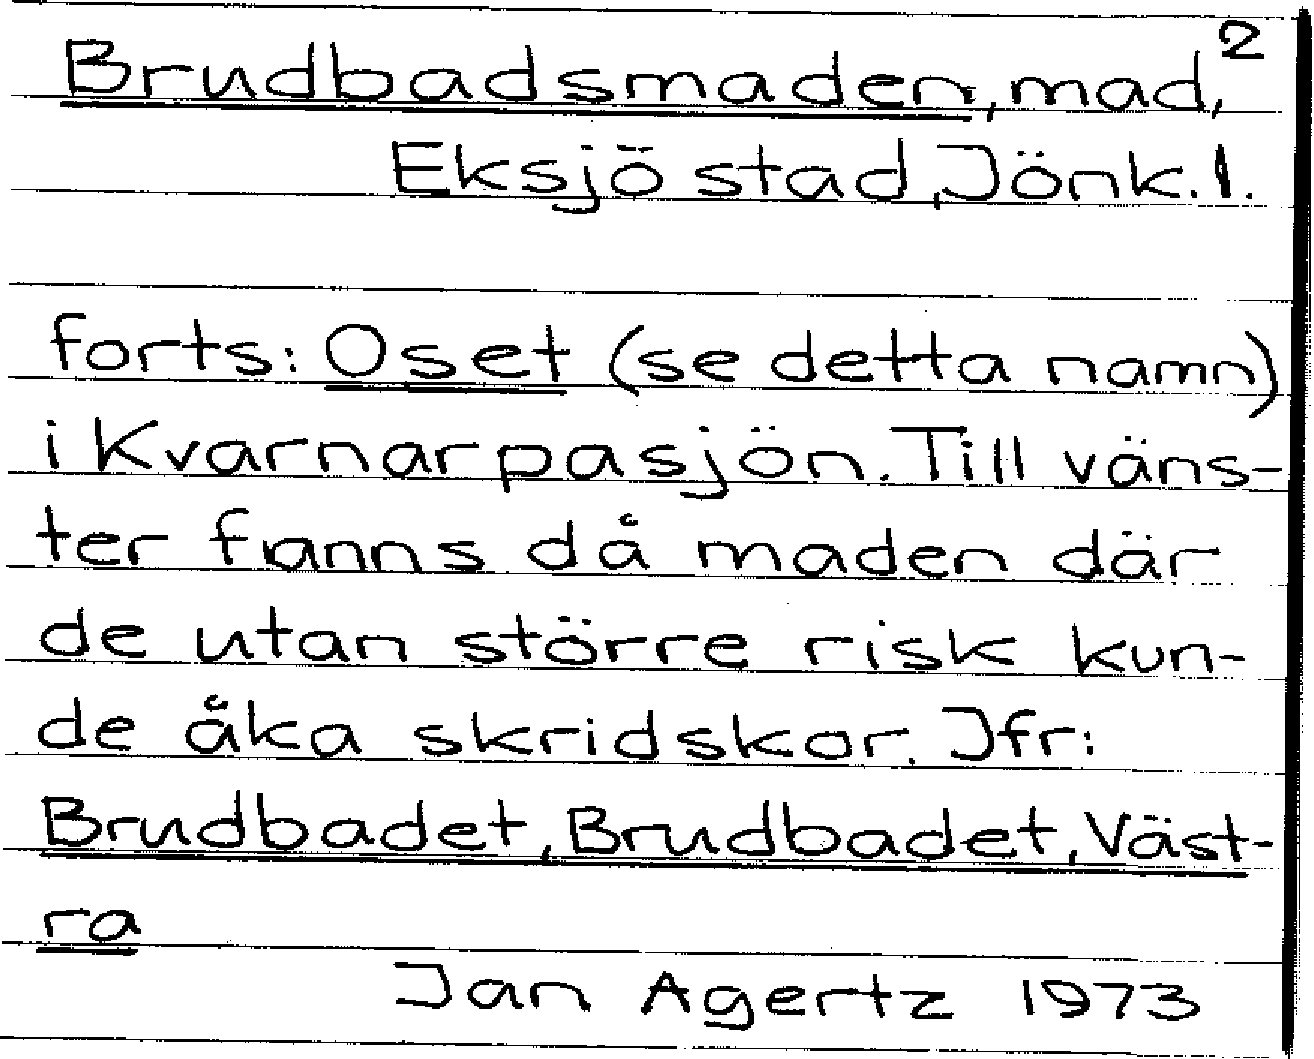 Brudbadsmaden, mad, 2
Eksjö stad, Jönk. l.
forts: Oset (se detta namn)
i Kvarnarpasjön. Till väns-
ter fanns då maden där
de utan större risk kun-
de åka skridskor. Jfr:
Brudbadet, Brudbadet, Väst-
ra
Jan Agertz 1973